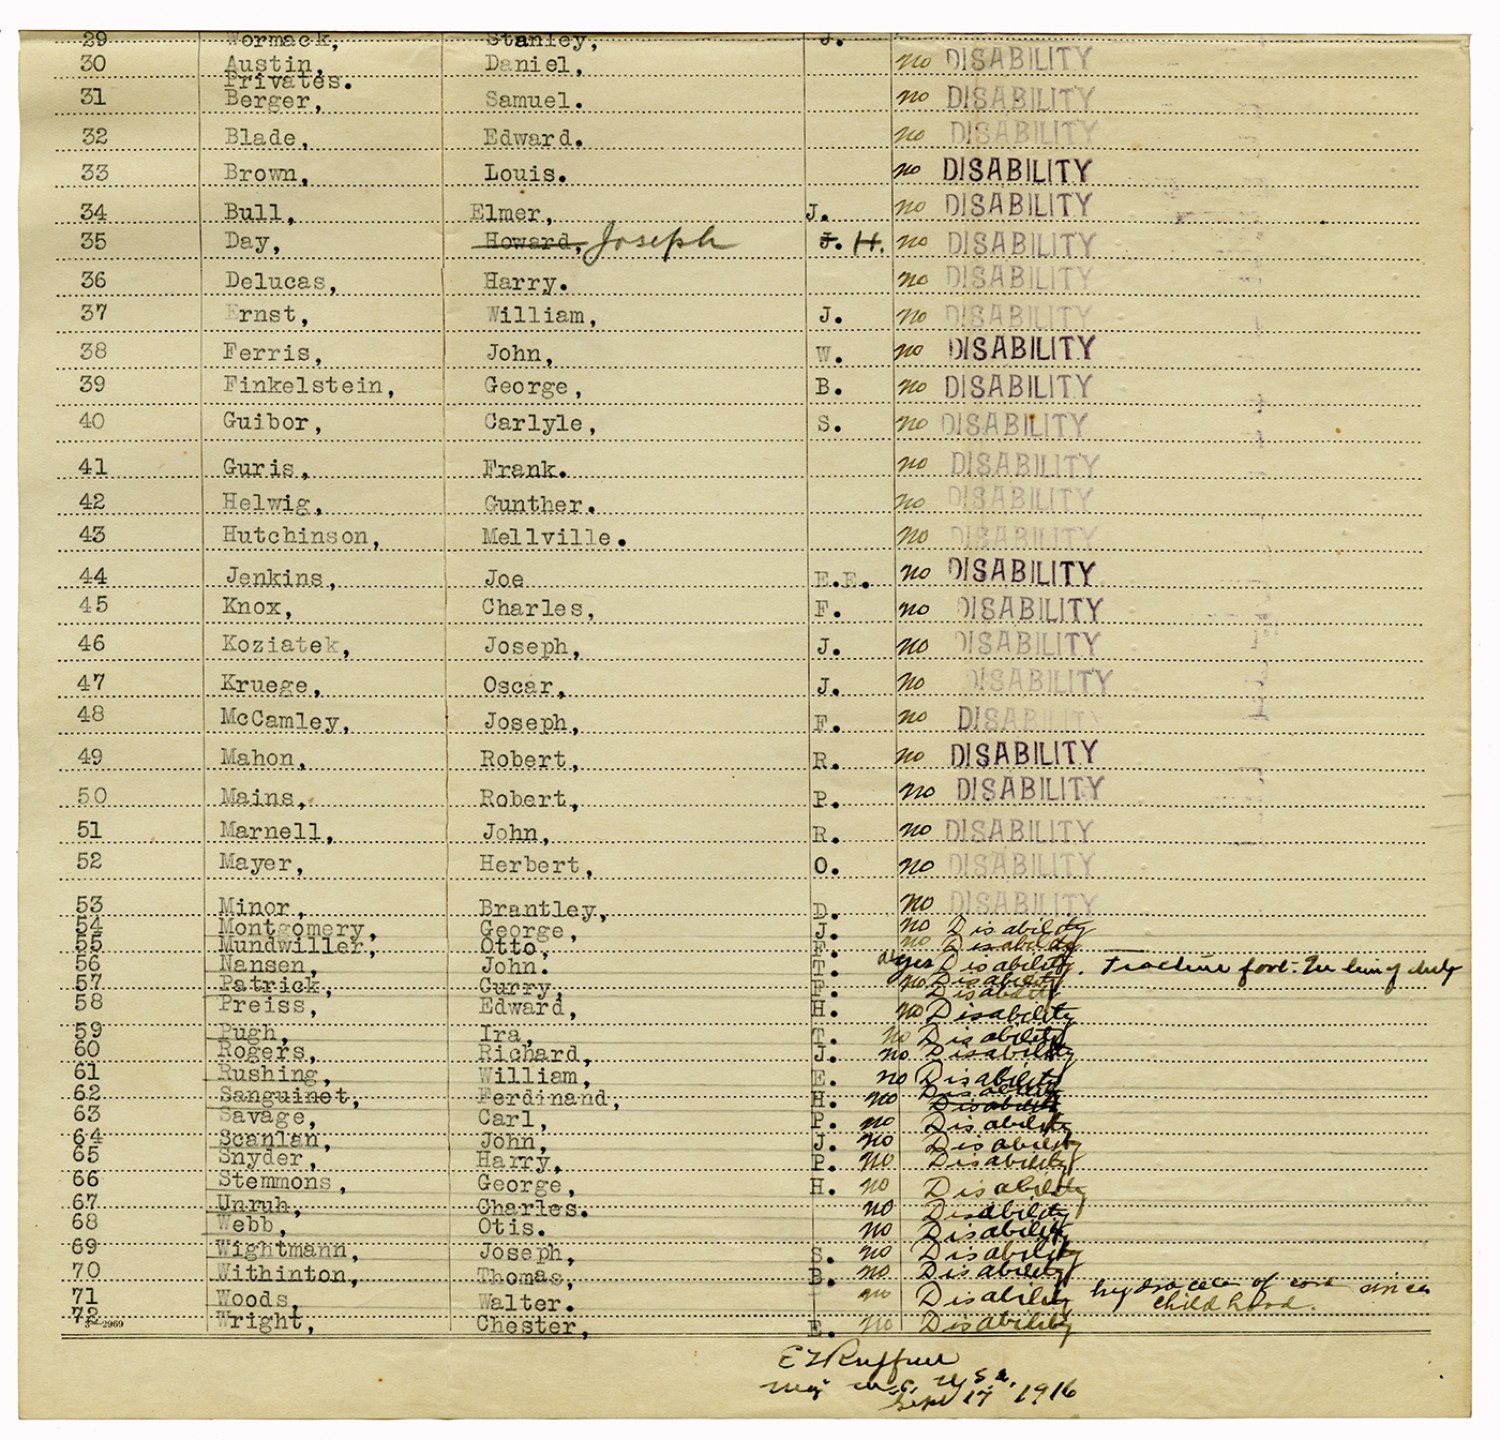 29 Wormack, Stanley, J.
30 Austin, Daniel, no DISABILITY
Privates.
31 Berger, Samuel. no DISABILITY
32 Blade, Edward. no DISABILITY
33 Brown, Louis. no DISABILITY
34 Bull, Elmer, J. no DISABILITY
35 Day, Howard, Joseph J. H. no DISABILITY
36 Delucas, Harry. no DISABILITY
37 Ernst, William, J. no DISABILITY
38 Ferris, John, W. no DISABILITY
39 Finkelstein, George, B. no DISABILITY
40 Guibor, Carlyle, S. no DISABILITY
41 Guris, Frank. no DISABILITY
42 Helwig, Gunther. no DISABILITY
43 Hutchinson, Mellville. no DISABILITY
44 Jenkins, Joe E.E. no DISABILITY
45 Knox, Charles, F. no DISABILITY
46 Koziatek, Joseph, J. no DISABILITY
47 Kruege, Oscar, J. no DISABILITY
48 McCamley, Joseph, F. no DISABILITY
49 Mahon, Robert, R. no DISABILITY
50 Mains, Robert, P. no DISABILITY
51 Marnell, John, R. no DISABILITY
52 Mayer, Herbert, O. no DISABILITY
53 Minor, Brantley, D. no DISABILITY
54 Montgomery, George, J. no Disability
55 Mundwiller, Otto, F. no Disability
56 Nansen, John. T. yes Disability. Fracture foot. In line of duty
57 Patrick, Curry, F. no Disability
Disability
58 Preiss, Edward, H. no Disability
59 Pugh, Ira, T. no Disability
60 Rogers, Richard, J. no Disability
61 Rushing, William, E. no Disability
Disability
62 Sanguinet, Ferdinand, H. no Disability
63 Savage, Carl, P. no Disability
64 Scanlan, John, J. no Disability
65 Snyder, Harry, P. no Disability
66 Stemmons, George, H. no Disability
67 Unruh, Charles. no Disability
68 Webb, Otis. no Disability
69 Wightmann, Joseph, S. no Disability
70 Withinton, Thomas, B. no Disability
71 Woods, Walter. no Disability hydrocele of cord since
childhood.
72 Wright, Chester, E. no Disability
3-2969
E T Ruffner
Maj M.C. U.S.A.
Sept 17 1916